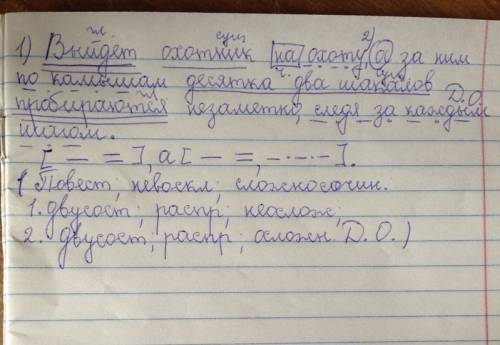 гл. сущ. 2)
1) Выйдет охотник на охоту а за ним
по камышам десятка два шакалов
Д.О.
пробираются незаметно, следя за каждым
шагом.
[ — = ], а [ — =, -·-·-·- ].
(Повест, невоскл, сложносочин.
1. двусост; распр; неослож;
2. двусост; распр; осложн. Д.О.)